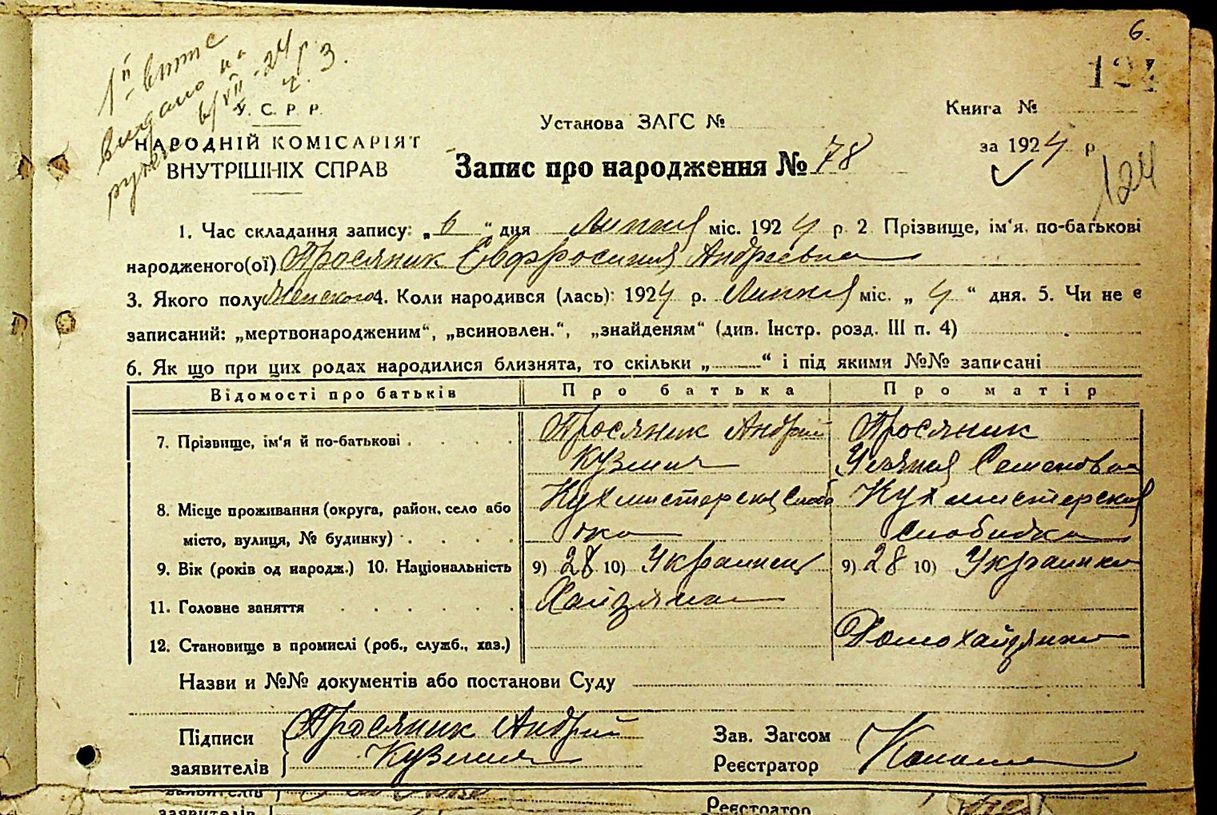 6.
124
У. С. Р. Р.
НАРОДНІЙ КОМІСАРІЯТ
ВНУТРІШНІХ СПРАВ
Установа ЗАГС №
Книга №
за 1924 р.
124
Запис про народження № 78
1. Час складання запису: „ 6 " дня Липня міс. 1924 р 2 Прізвище, ім'я, по-батькові
народженого(ої) Просяник Евфросиния Андріевна
3. Якого полу Женского 4. Коли народився (лась): 1924 р. Липня міс. „ 4 " дня. 5. Чи не є
записаний: „мертвонародженим", „всиновлен.", „знайденям" (див. Інстр. розд. III п. 4)
6. Як що при цих родах народилися близнята, то скільки „ " і під якими №№ записані
Відомості про батьків Про батька Про матір
7. Прізвище, ім'я й по-батькові Просяник Андрій Просяник
Кузмич Уляня Семеновна
8. Місце проживання (округа, район, село або Кухмистерская Слобо Кухмистерская
місто, вулиця, № будинку) дка Слобидка
9. Вік (років од народж.) 10. Національність 9) 28 10) Украинец 9) 28 10) Украинка
11. Головне заняття
12. Становище в промислі (роб., служб., хаз.) Домохайзяйка
Назви и №№ документів або постанови Суду
Підписи Просяник Андрій Зав. Загсом
заявителів Кузмич Реєстратор
заявителів Реєстратор